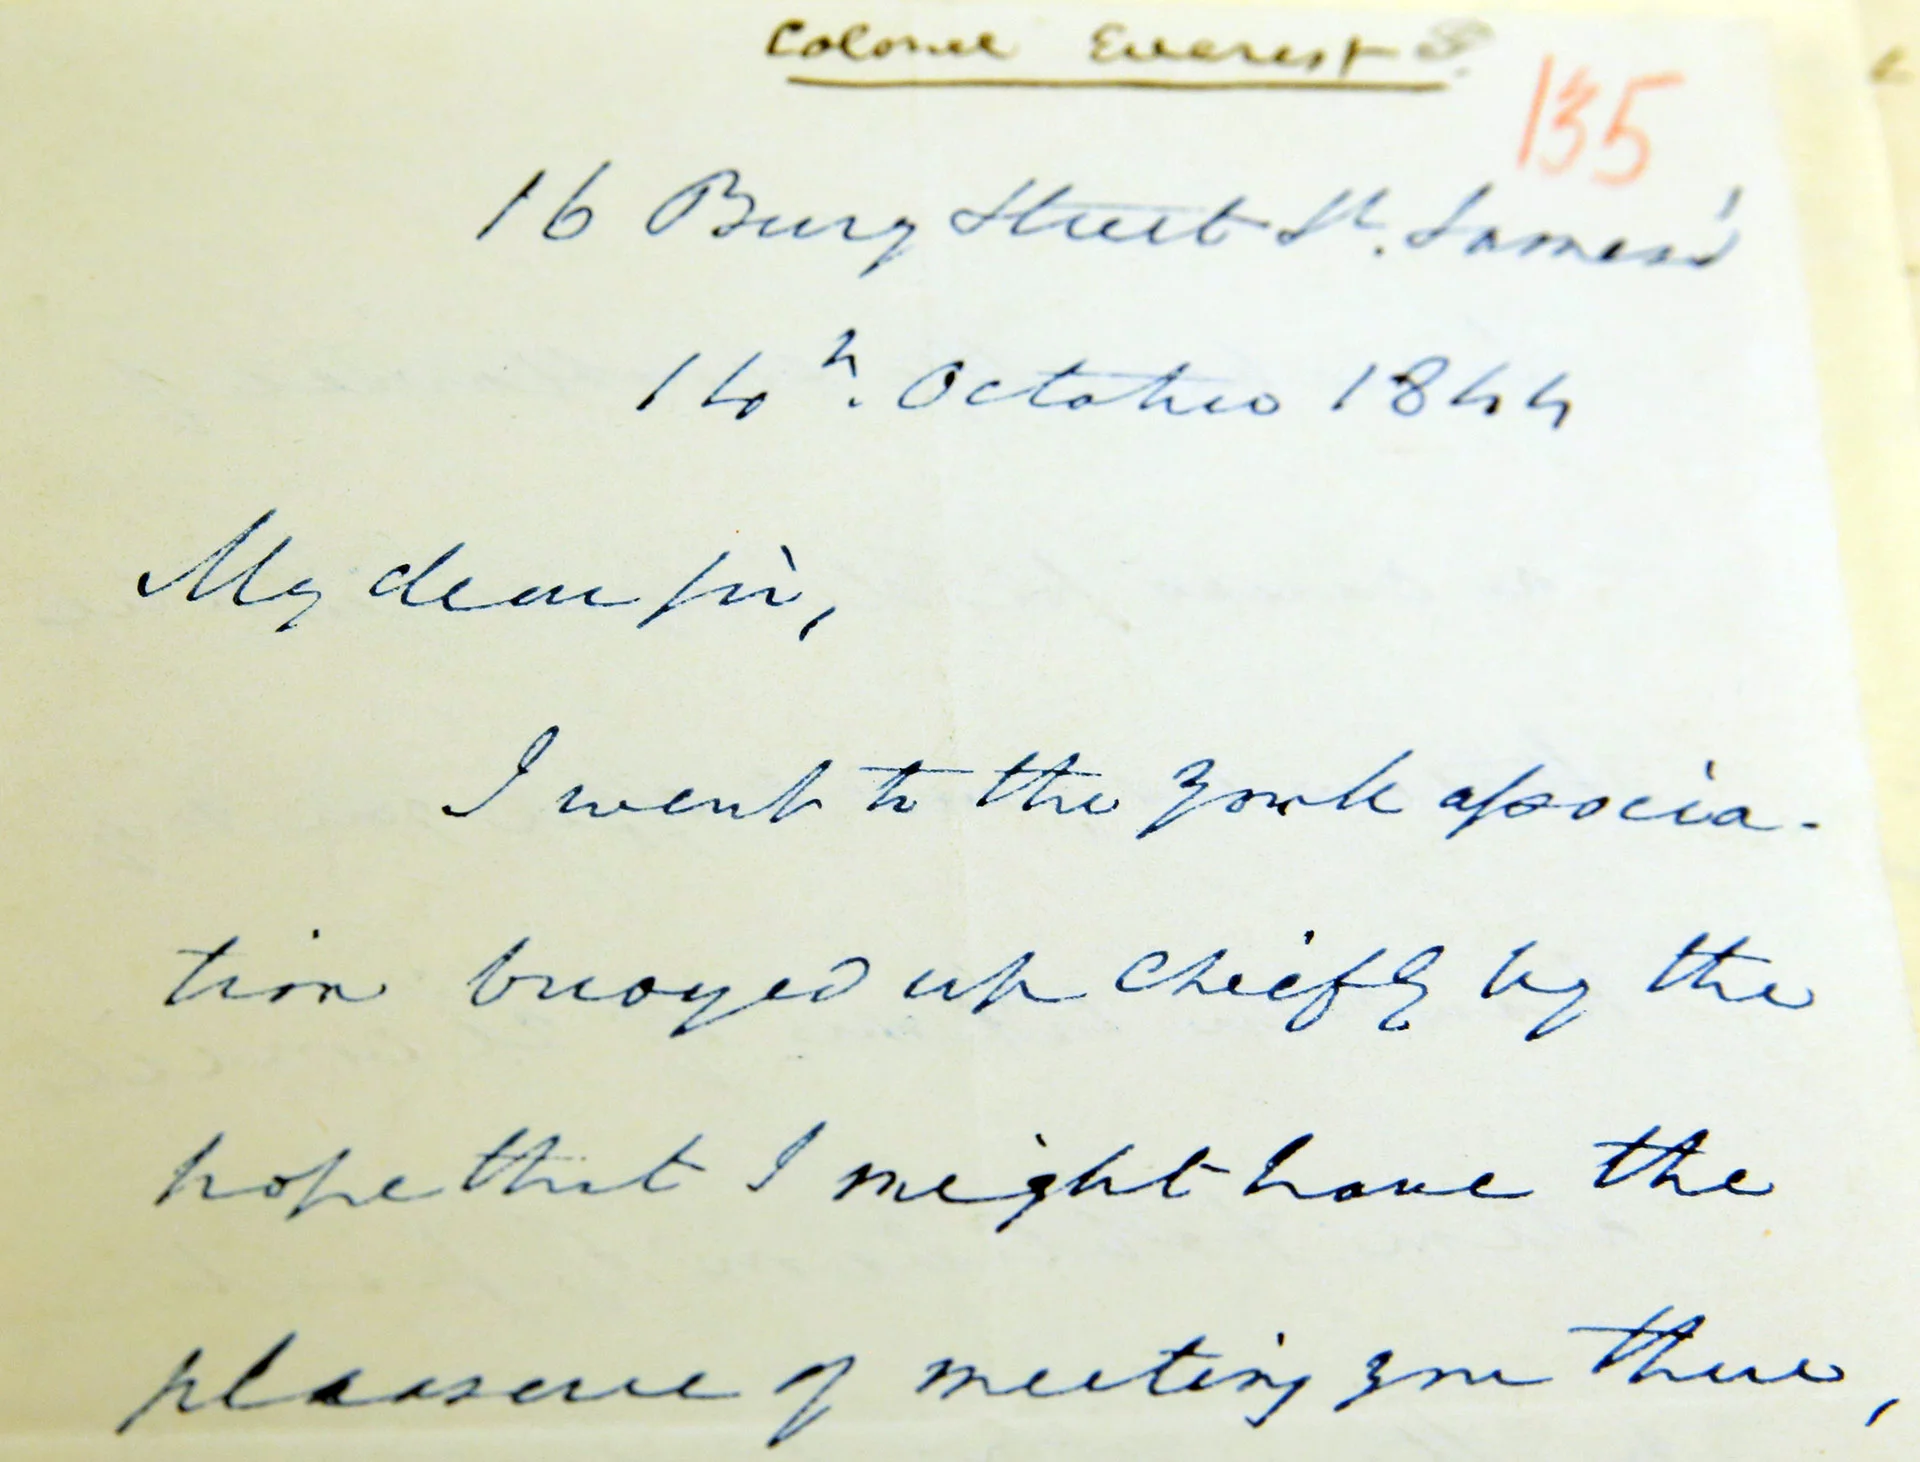 Colonel Everest
135
16 Bury Street St. James'
14h. October 1844
My dear sir,
I went to the York associa-
tion buoyed up chiefly by the
hope that I might have the
pleasure of meeting you there,